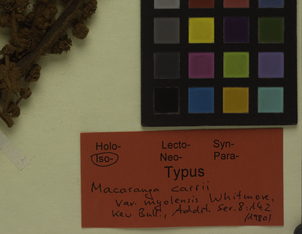 Holo- Lecto- Syn-
Iso- Neo- Para-
Typus
Macaranga carrii
var. myolensis Whitmore,
Kew Bull., Addit. Ser. 8: 142
(1980)